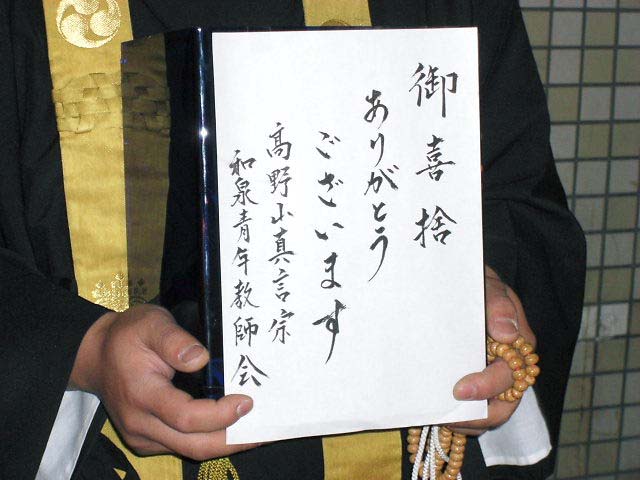 御喜捨
ありがとう
ございます
高野山真言宗
和泉青年教師会